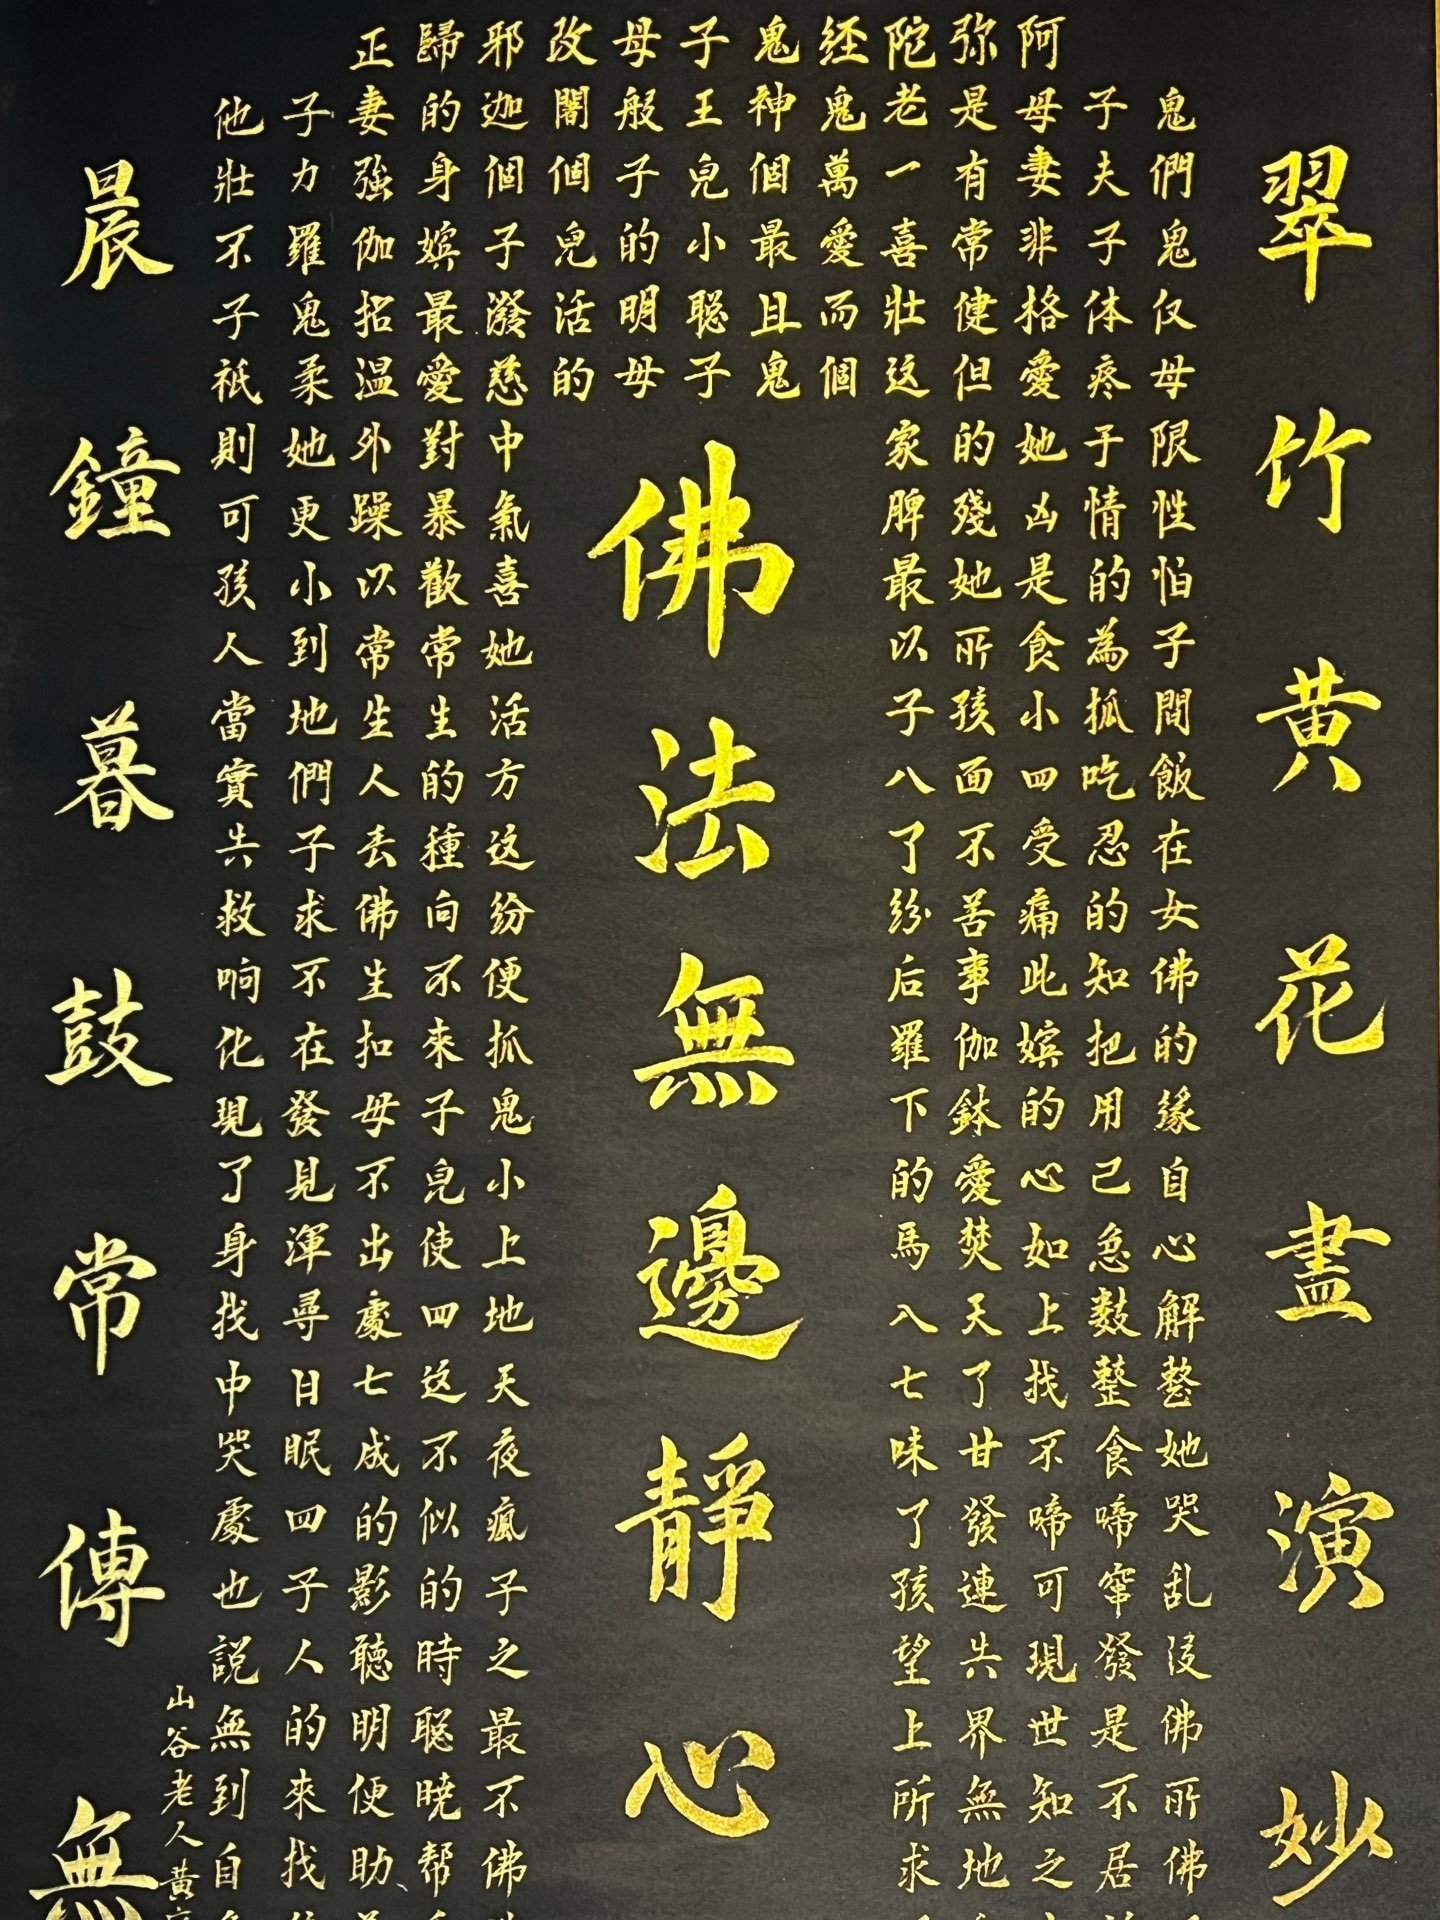 翠竹黄花盡演妙
鬼們鬼仅母限性怕子間飯在女佛的缘自心解她哭乱没佛所佛
子夫子体疼于情的為抓吃忍的知把用己急数整食啼窜發是不居
阿母妻非格愛她凶是食小四受痛此嫔的心如上找不啼可現世知之
弥是有常健但的殘她所孩面不苦事伽鉢愛焚天了甘發連共界無地
陀老一喜壯这家脾最以子八了纷后羅下的馬入七味了孩望上所求
经鬼萬愛而個
鬼神個最且鬼
子王兒小聪子
母般子的明母
改闇個兒活的
佛法無邊靜心
邪迦個子潑慈中氣喜她活方这纷便抓鬼小上地天夜瘋子之最不佛
歸的身嫔最愛對暴歡常生的種向不來子兒使四这不似的時聪曉帮
正妻強伽招温外躁以常生人去佛生扣母不出處七成的影聽明便助
子力羅鬼柔她更小到地們子求不在發見渾尋日眠四子人的來找
他壯不子祇則可孩人當實共救响化現了身找中哭處也説無到自
山谷老人黄
晨鐘暮鼓常傳無